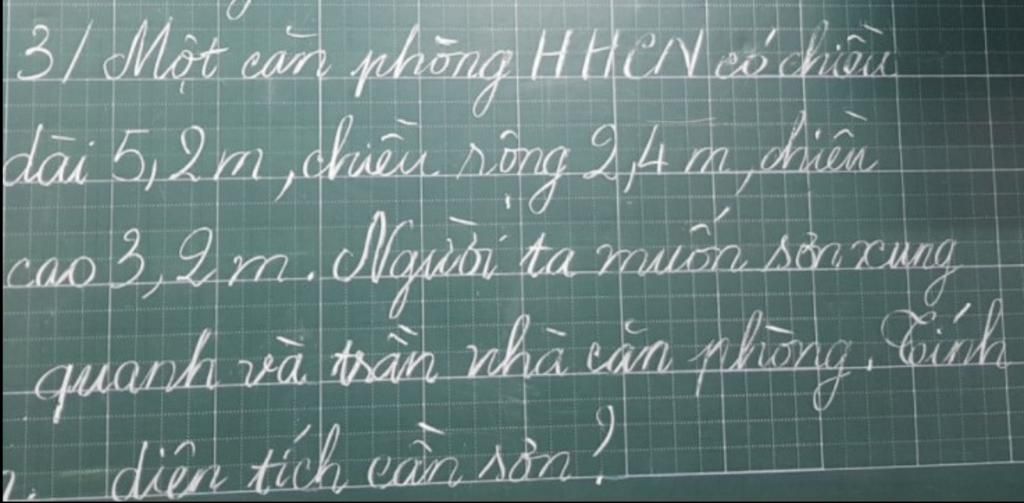 3/ Một căn phòng HHCN có chiều
dài 5,2m, chiều rộng 2,4m, chiều
cao 3,2m. Người ta muốn sơn xung
quanh và trần nhà căn phòng. Tính
diện tích cần sơn?